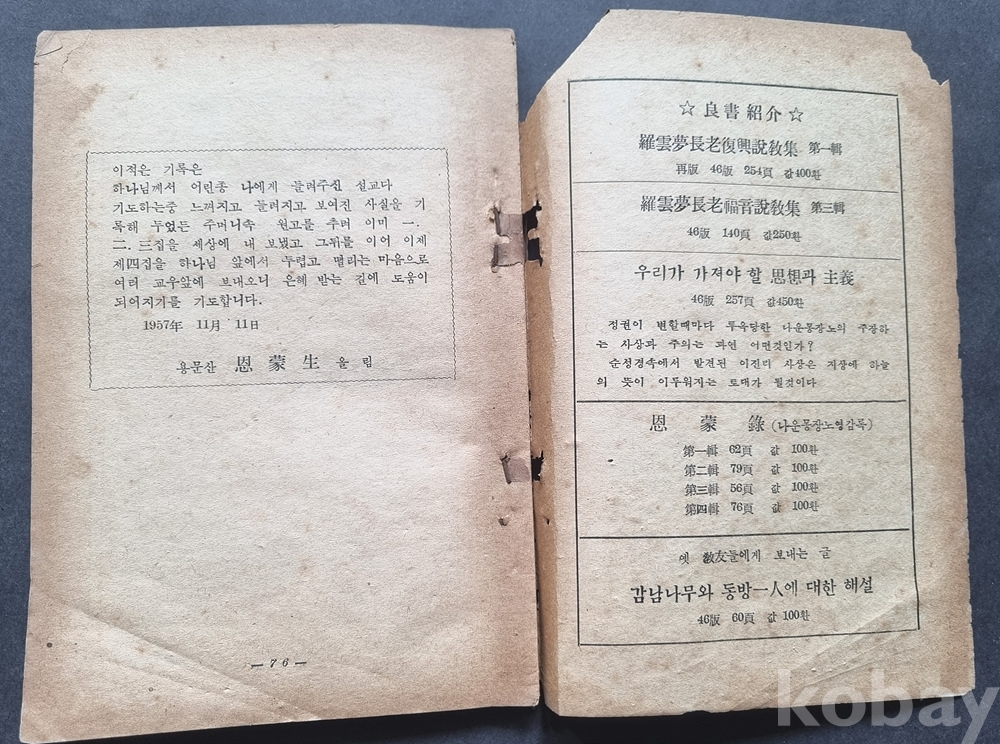 이적은 기록은
하나님께서 어린종 나에게 들려주신 설교다
기도하는중 느껴지고 들려지고 보여진 사실을 기
록해 두었든 주머니속 원고를 추려 이미 一.
二. 三집을 세상에 내 보냈고 그뒤를 이어 이제
제四집을 하나님 앞에서 두렵고 떨리는 마음으로
여러 교우앞에 보내오니 은혜 받는 길에 도움이
되어지기를 기도합니다.
1957年 11月 11日
용문산 恩蒙生 올림
— 76 —
☆ 良書紹介 ☆
羅雲夢長老復興說敎集 第一輯
再版 46版 254頁 값400환
羅雲夢長老福音說敎集 第三輯
46版 140頁 값250환
우리가 가져야 할 思想과 主義
46版 257頁 값450환
정권이 변할때마다 투옥당한 나운몽장노의 주장하
는 사상과 주의는 과연 어떤것인가?
순성경속에서 발견된 이진리 사상은 지상에 하늘
의 뜻이 이루워지는 토대가 될것이다
恩蒙錄 (나운몽장노영감록)
第一輯 62頁 값 100환
第二輯 79頁 값 100환
第三輯 56頁 값 100환
第四輯 76頁 값 100환
옛 敎友들에게 보내는 글
감남나무와 동방一人에 대한 해설
46版 60頁 값 100환
kobay